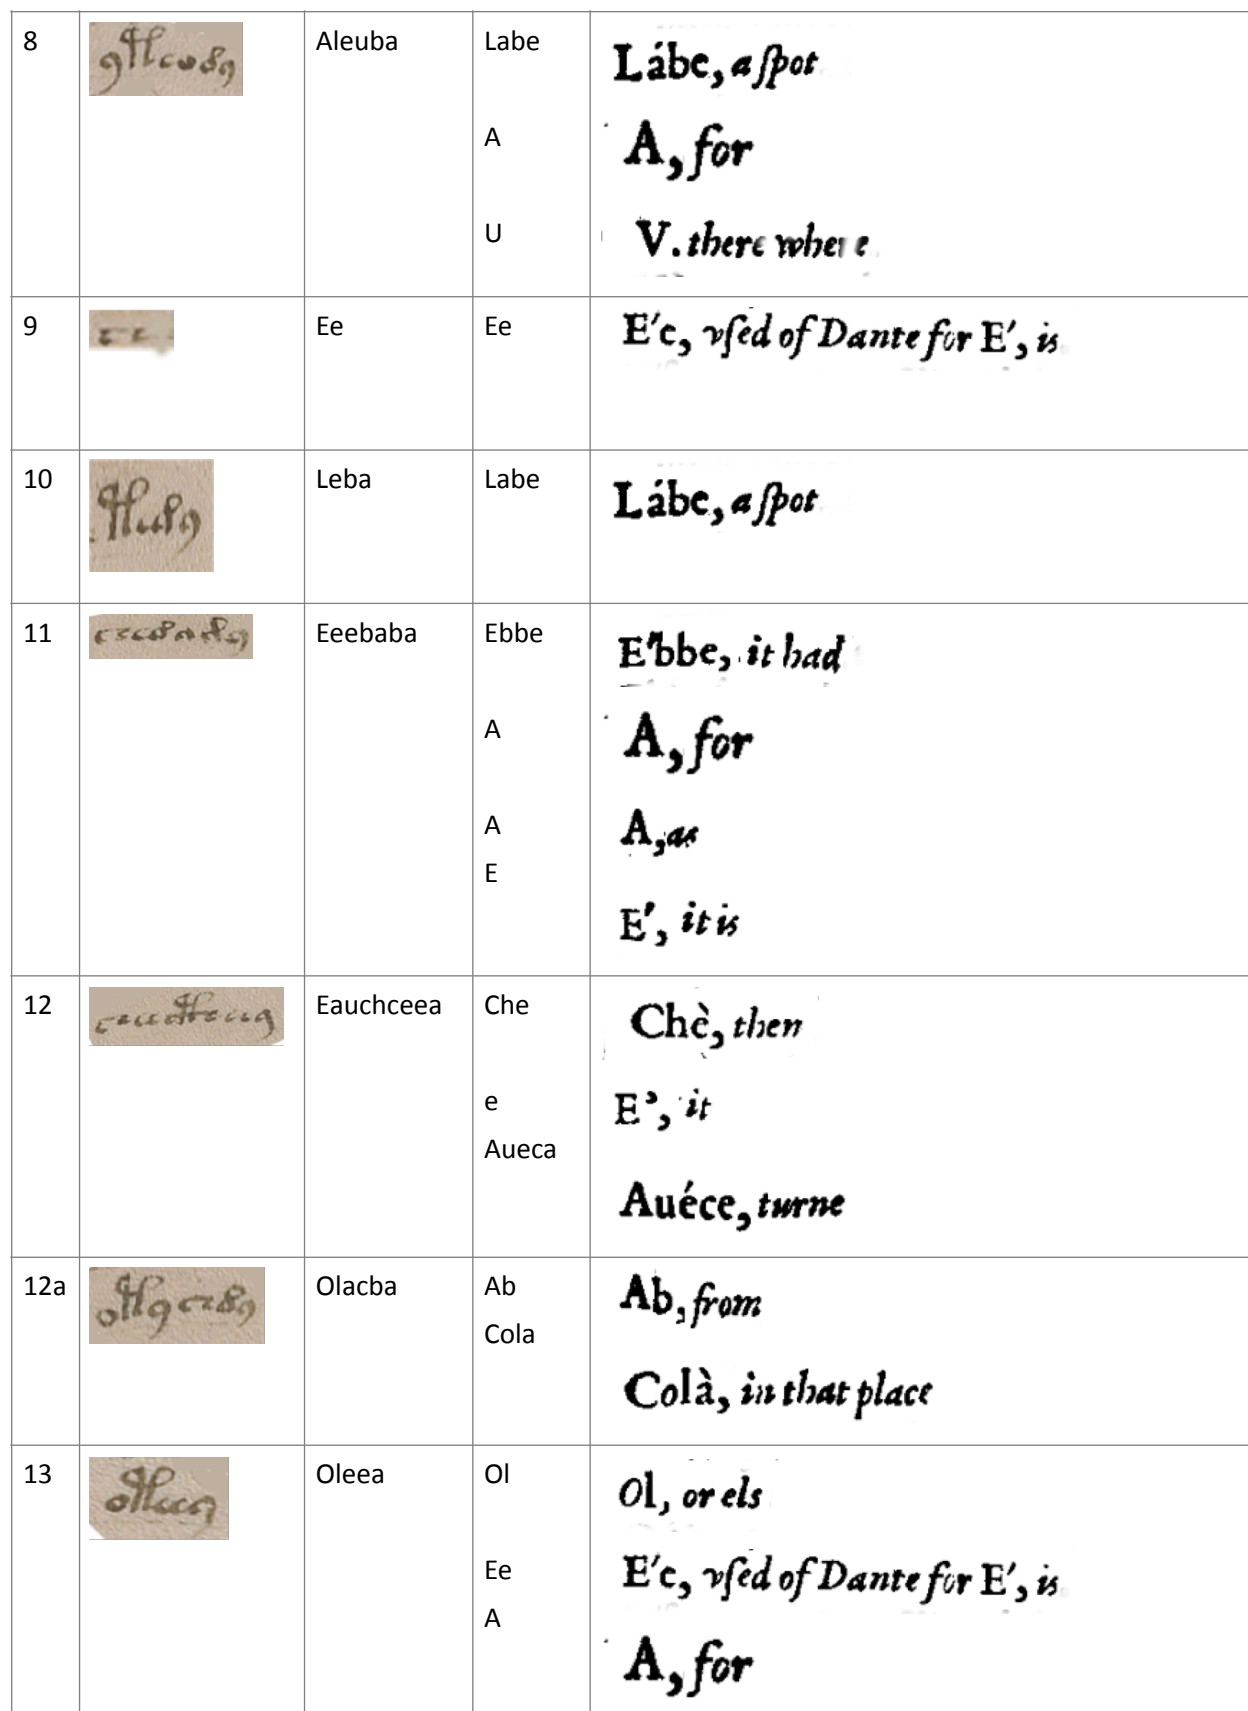 8 Aleuba Labe Lábe, a ſpot
A A, for
U V. there where
9 Ee Ee E'e, vſed of Dante for E', is
10 Leba Labe Lábe, a ſpot
11 Eeebaba Ebbe E'bbe, it had
A A, for
A A, as
E E', it is
12 Eauchceea Che Chè, then
e E', it
Aueca Auéce, turne
12a Olacba Ab Ab, from
Cola Colà, in that place
13 Oleea Ol Ol, or els
Ee E'e, vſed of Dante for E', is
A A, for